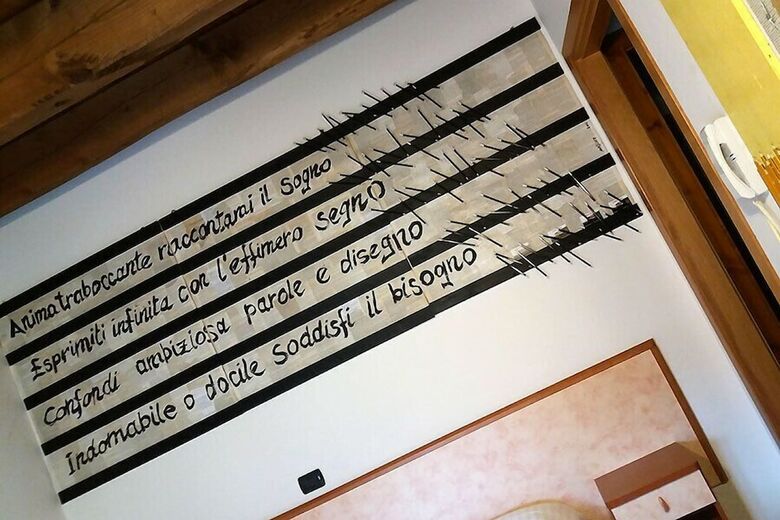 Anima traboccante raccontami il Sogno
Esprimiti infinita con l'effimero segno
Confondi ambiziosa parole e disegno
Indomabile o docile Soddisfi il bisogno